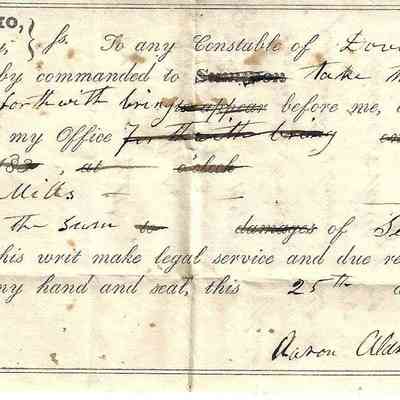 IO,
ss. To any Constable of
by commanded to Summon take
forthwith bring appear before me,
my Office forthwith bring on
183 , at o'clock
Mills
the sum to damages of
his writ make legal service and due re
ny hand and seal, this 25th
Aaron Ald